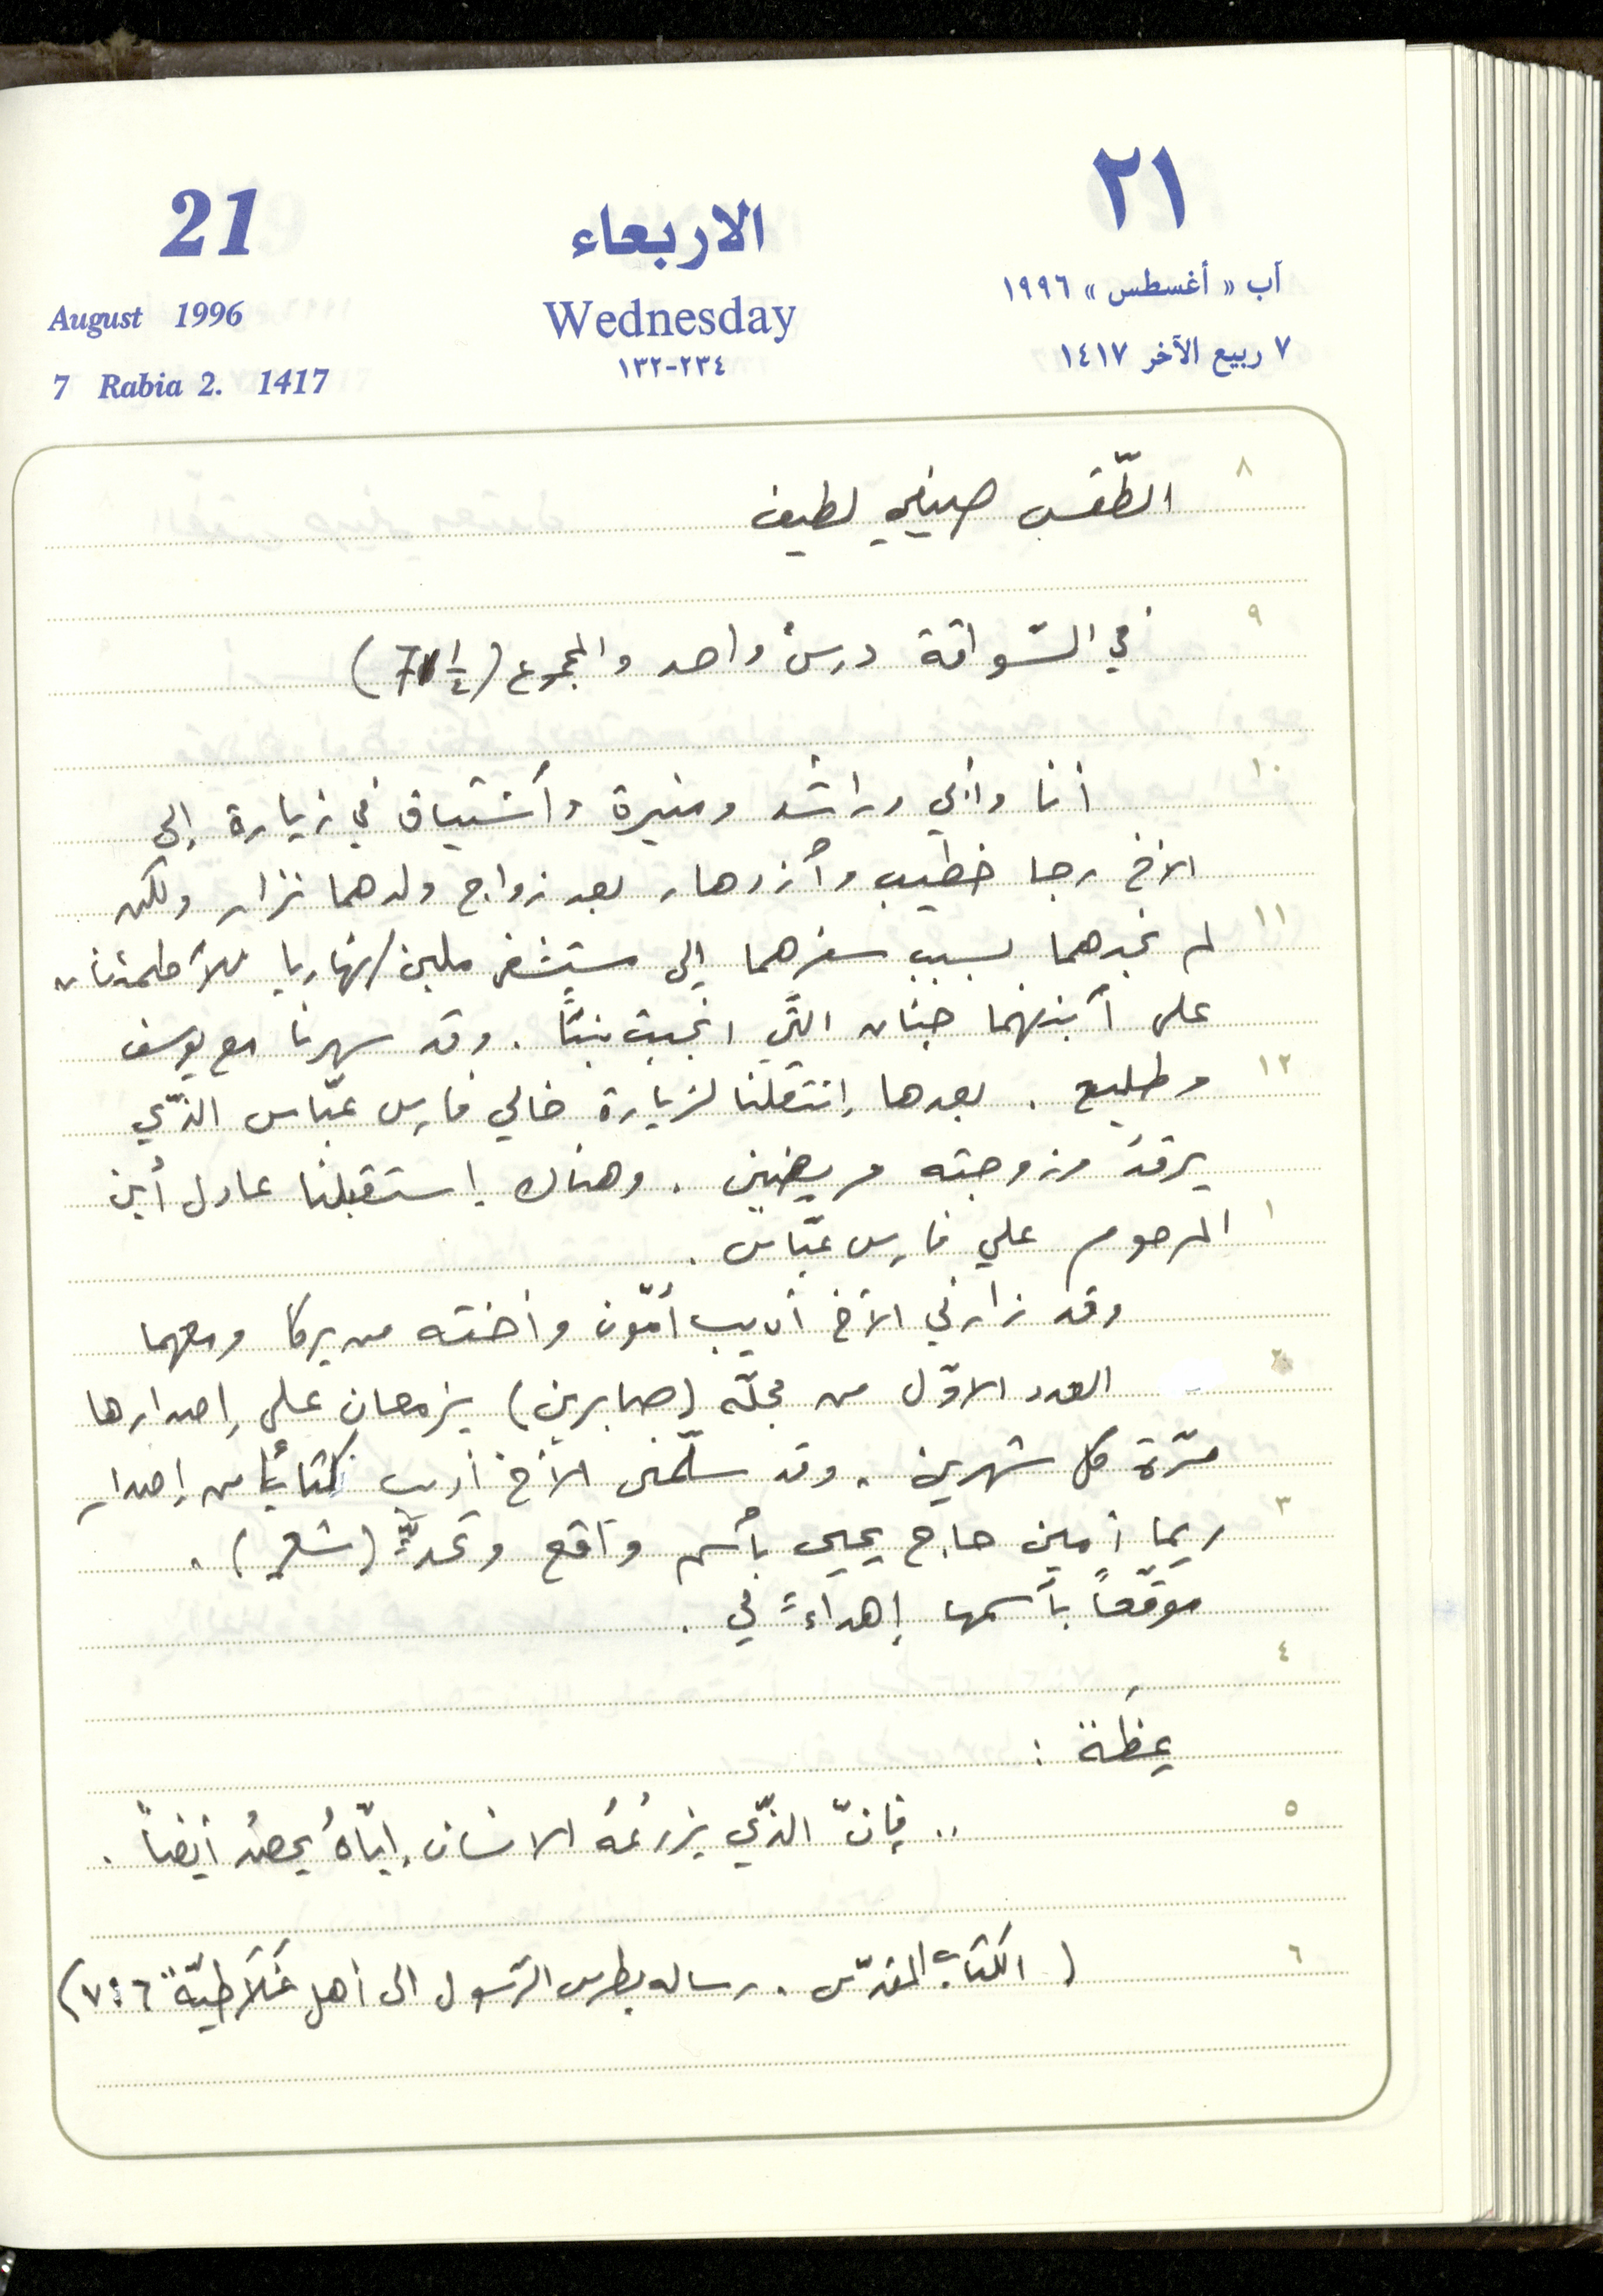 21
الاربعاء
٢١
August 1996
Wednesday
آب « أغسطس » ١٩٩٦
7 Rabia 2. 1417
١٣٢-٢٣٤
٧ ربيع الآخر ١٤١٧
٨
الطّقس صيفي لطيف
٩
في السّواقة درسٌ واحد والمجموع
١٠
أنا وأبي وراشد ومنيرة وأشتياق في زيارة إلى
الأخ رجا خطيب وأزدهار بعد زواج ولدهما نزار ولكن
١١
لم نجدهما بسبب سفرهما إلى مستشفى نهاريا للأطمئنان
على أبنتهما جنان التّي انجبت بنتًا . وقد سهرنا مع يوسف
١٢
وطليع . بعدها إنتقلنا لزيارة خالي فارس عبّاس الذّي
يرقد وزوجته مريضين . وهناك إستقبلنا عادل أبن
١
المرحوم علي فارس عبّاس .
وقد زارني الأخ أديب أمّون وأخته من يركا ومعهما
٢
العدد الاوّل من مجلّة (صبابرين) يزمعان على إصدارها
مرّة كل شهرين . وقد سلّمني الأخ أديب كتابًا من إصدار
٣
ريما أمين حاج يحيى بأسم واقع وتحدٍّ (شعر) .
موقّعاً بأسمها إهداءً لي .
٤
عِظَة :
٥
.. فإنّ الذّي يزرعُهُ الانسان إيّاهُ يحصدُ أيضاً .
٦
( الكتاب المقدّس . رساله بطرس الرّسول الى أهل غَلَاطيّة ٦ : ٧)